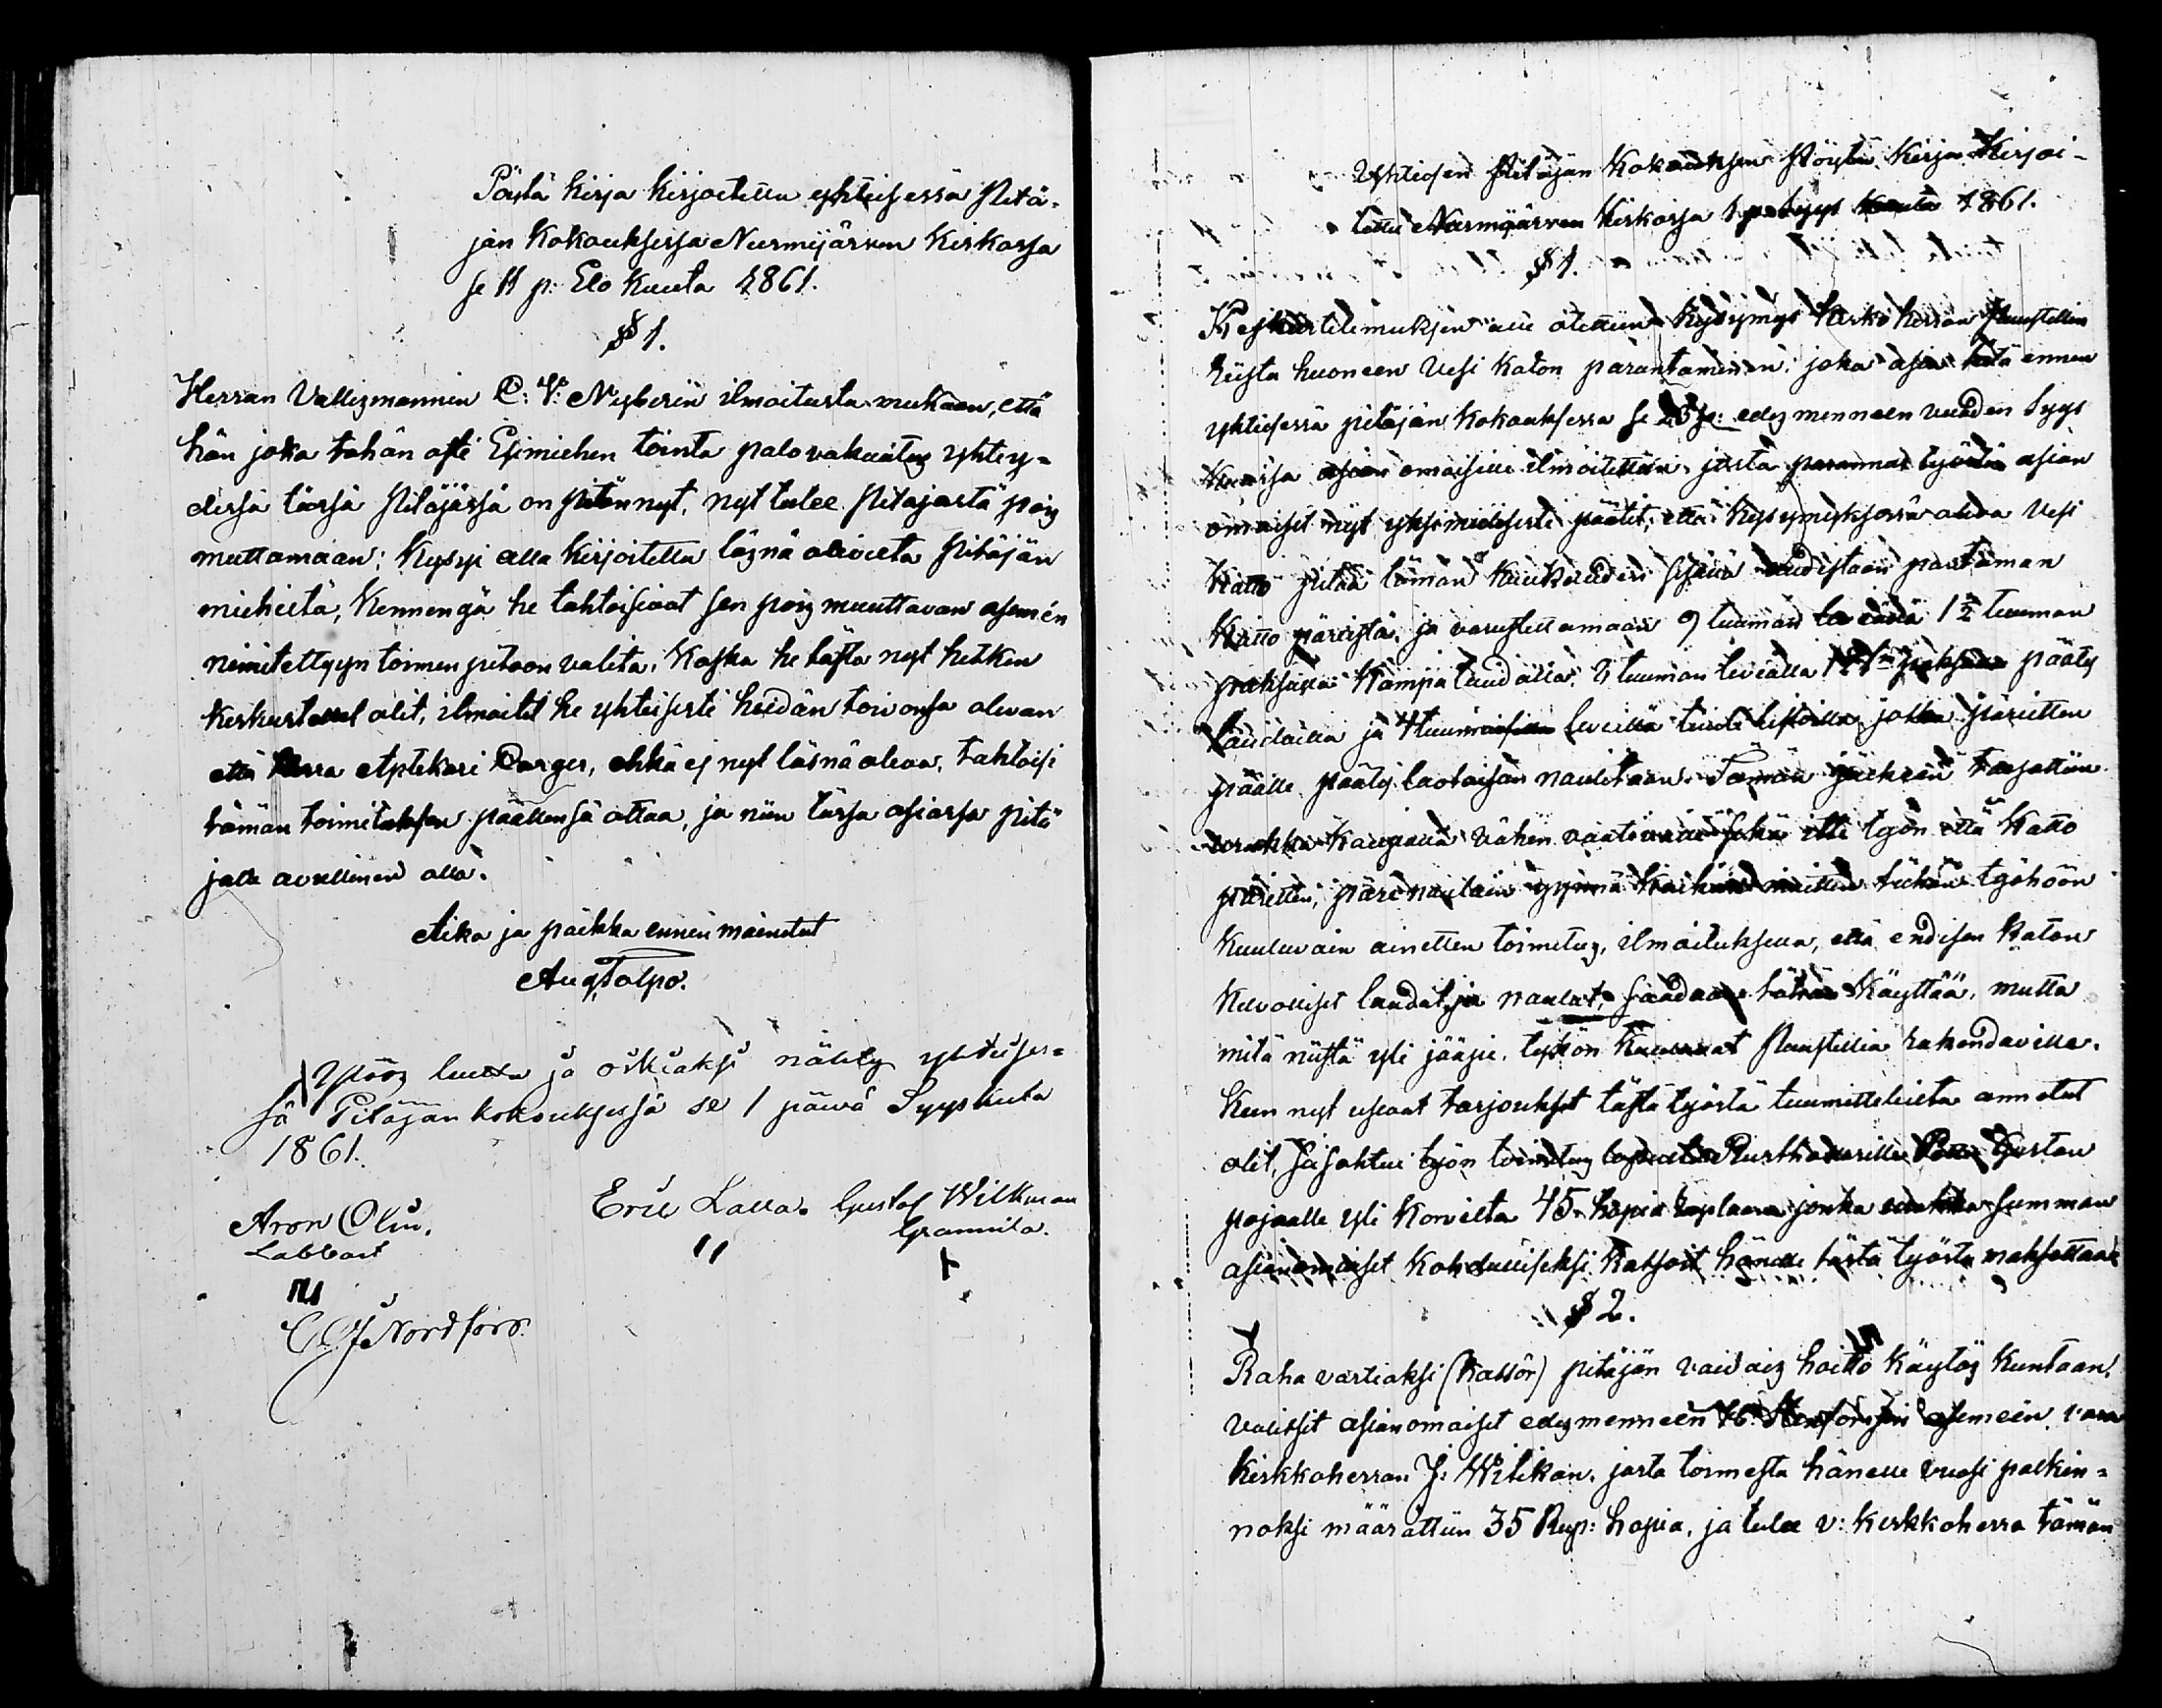 Pöytä kirja kirjoitettu yhteisessä Pitä-
jän Kokouksessa Nurmijärven Kirkossa
se 11 p: Elo Kuuta 1861.
§ 1.
Herran Vallesmannin C: V: Nyberin ilmoitusta mukaan, että
hän joka tähän asti Esimiehen töintä palo vakuutus yhtey-
dessä tässä Pitäjässä on pitännyt, nyt tulee Pitäjästä pois
muttamaan; Kysyi alla kirjoitettu läsnä olevilta Pitäjän
miehiltä, Kennengä he tahtoisivat sen pois muuttavan asemen
nimitettyyn toimen pitoon valita. Koska he tästä nyt hetken
keskustellet olit, ilmoitit he yhteisesti heidän toivonsa olevan
että Herra Aptekari Carger, ehkä ej nyt läsnä oleva, tahtoisi
tämän toimituksen päällensä ottaa, ja niin tässä asiassa pitä
jälle avullinen olla.
Aika ja paikka ennen mainitut
Aug Talpo.
Ylös luettu ja oikiaksi nähty yhteises-
sä Pitäjän kokouksessa se 1 päivä Syyskuuta
1861.
Aron Olin. Eric Lalla. Gustaf Wilkman
Labbart Grannila.
C. G. Nordfors.
Yhteisen Pitäjän Kokouksen Pöytä Kirja Kirjoi-
tettu Nurmijärven Kirkossa 1 p: Syys Kuuta 1861.
§ 1.
Keskustelemuksen alle otettiin Kysymys Kirko herran Puustellin
riista huoneen vesi katon parantaminen; joka asia tätä ennen
yhteisessä pitäjän Kokouksessa se 25 p: edes menneen vuoden Syys
Kuussa asian omaisille ilmoitettiin, josta parannus työstä asian
omaiset nyt yksimielisesti päätit, että Kysymyksessä oleva Vesi
Katto pitää tämän Kuukauden sisällä uudistaan pantaman
Katto päreistä, ja varustettamaan 9 tuuman leviällä 1 1/2 tuuman
paksuisa Kampa laudalla, 8 tuuman leviällä pääty
laudalla ja 4 tuuman leveillä listoilla jotka päreitten
päälle pääty laotaisin naulitaan. Tämän jälkeen tarjottiin
urakka Kaupalla vähen vaativalle sekä itte työn että Katto
päreitten, päre naulain ynnä kaikkein muitten tähän työhöön
kuuluvain ainetten toimitus, ilmoituksella, että endisen katon
Kelvolliset laudat ja naulat saadaan tähän Käyttää, mutta
mitä niistä yli jääpi, työön Kuuluvat Puustellin rakendavilla.
Kun nyt useat tarjoukset tästä työstä tuumittelieita annetut
olit, ja johtui työn toimitus Rusthollarille Gustan
pojalle yli Korvelta 45 hopia ruplaan jonka urakka summan
asianomaiset Kohdulliseksi Katsoit hänelle tästä työstä maksettaa
§ 2.
Raha vartiaksi (Kassör) pitäjän vaivais hoitto Käytös Kuntaan,
valitsit asianomaiset edesmenneen asemeen, vara
Kirkkoherran J: Witikan, josta toimesta hänelle vuosi palkin-
noksi määrättiin 35 Rup: hopia, ja tulee v: Kirkkoherra tämän